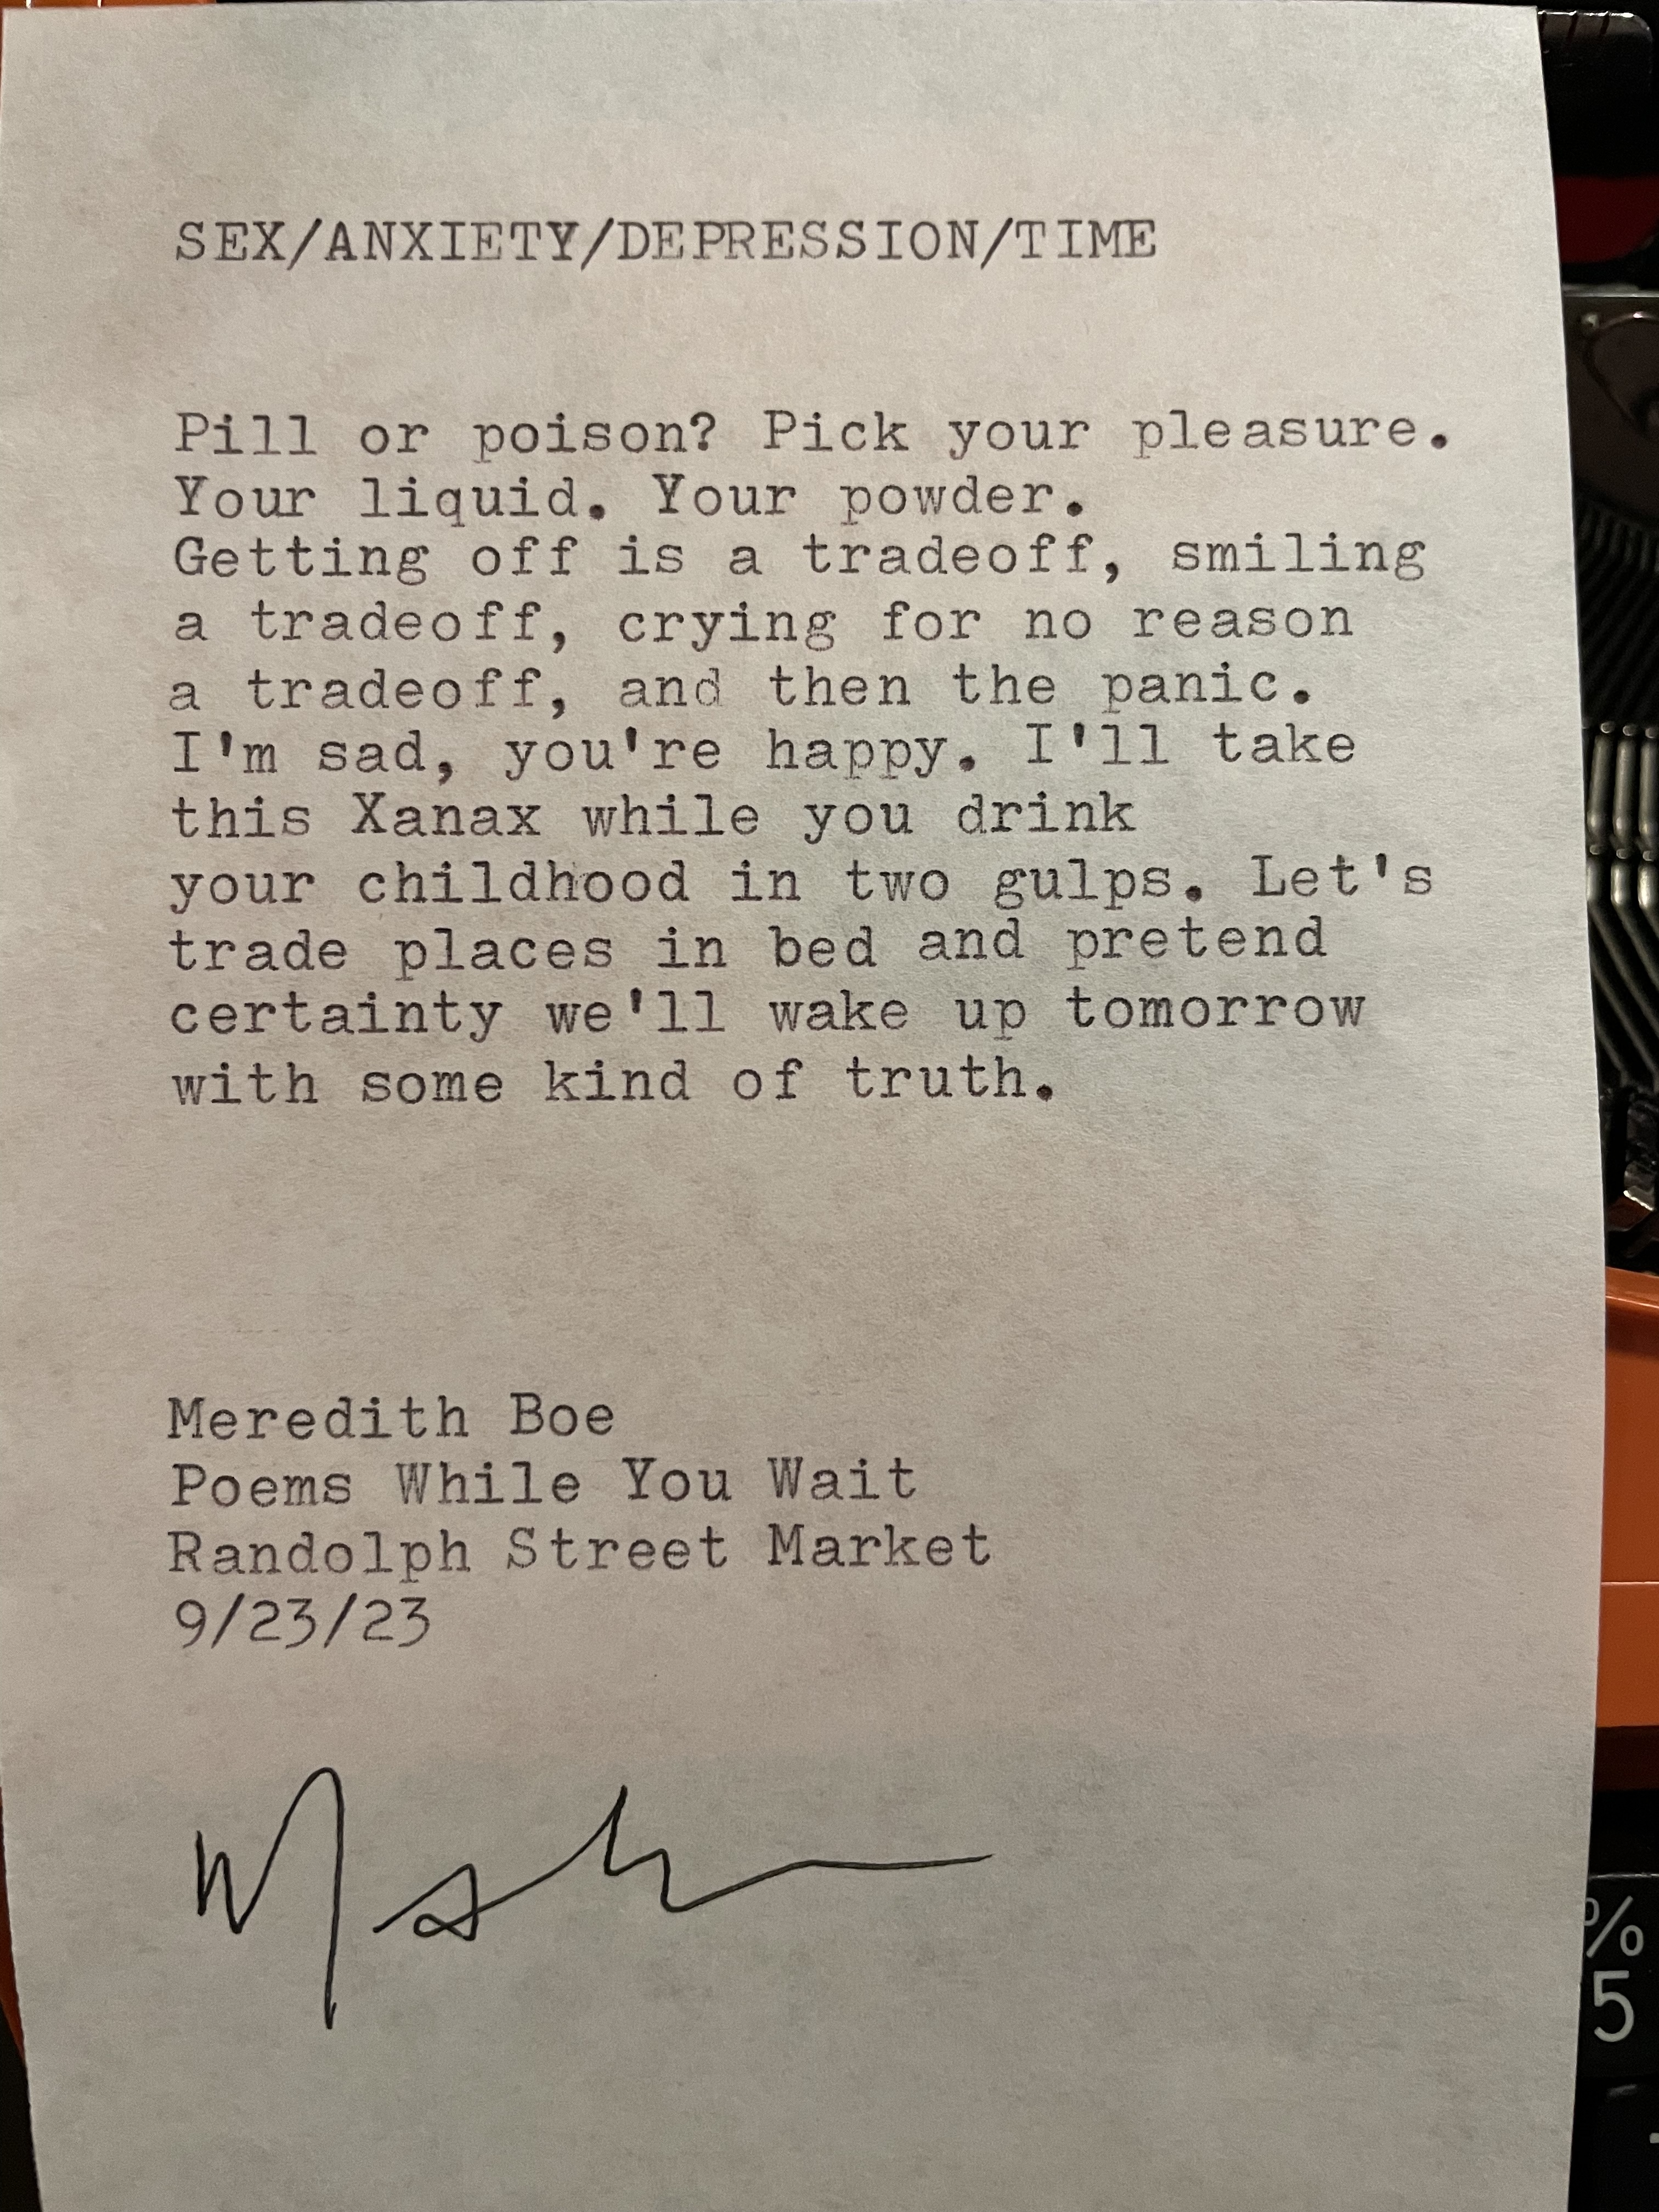 SEX/ANXIETY/DEPRESSION/TIME
Pill or poison? Pick your pleasure.
Your liquid. Your powder.
Getting off is a tradeoff, smiling
a tradeoff, crying for no reason
a tradeoff, and then the panic.
I'm sad, you're happy. I'll take
this Xanax while you drink
your childhood in two gulps. Let's
trade places in bed and pretend
certainty we'll wake up tomorrow
with some kind of truth.
Meredith Boe
Poems While You Wait
Randolph Street Market
9/23/23
%
5